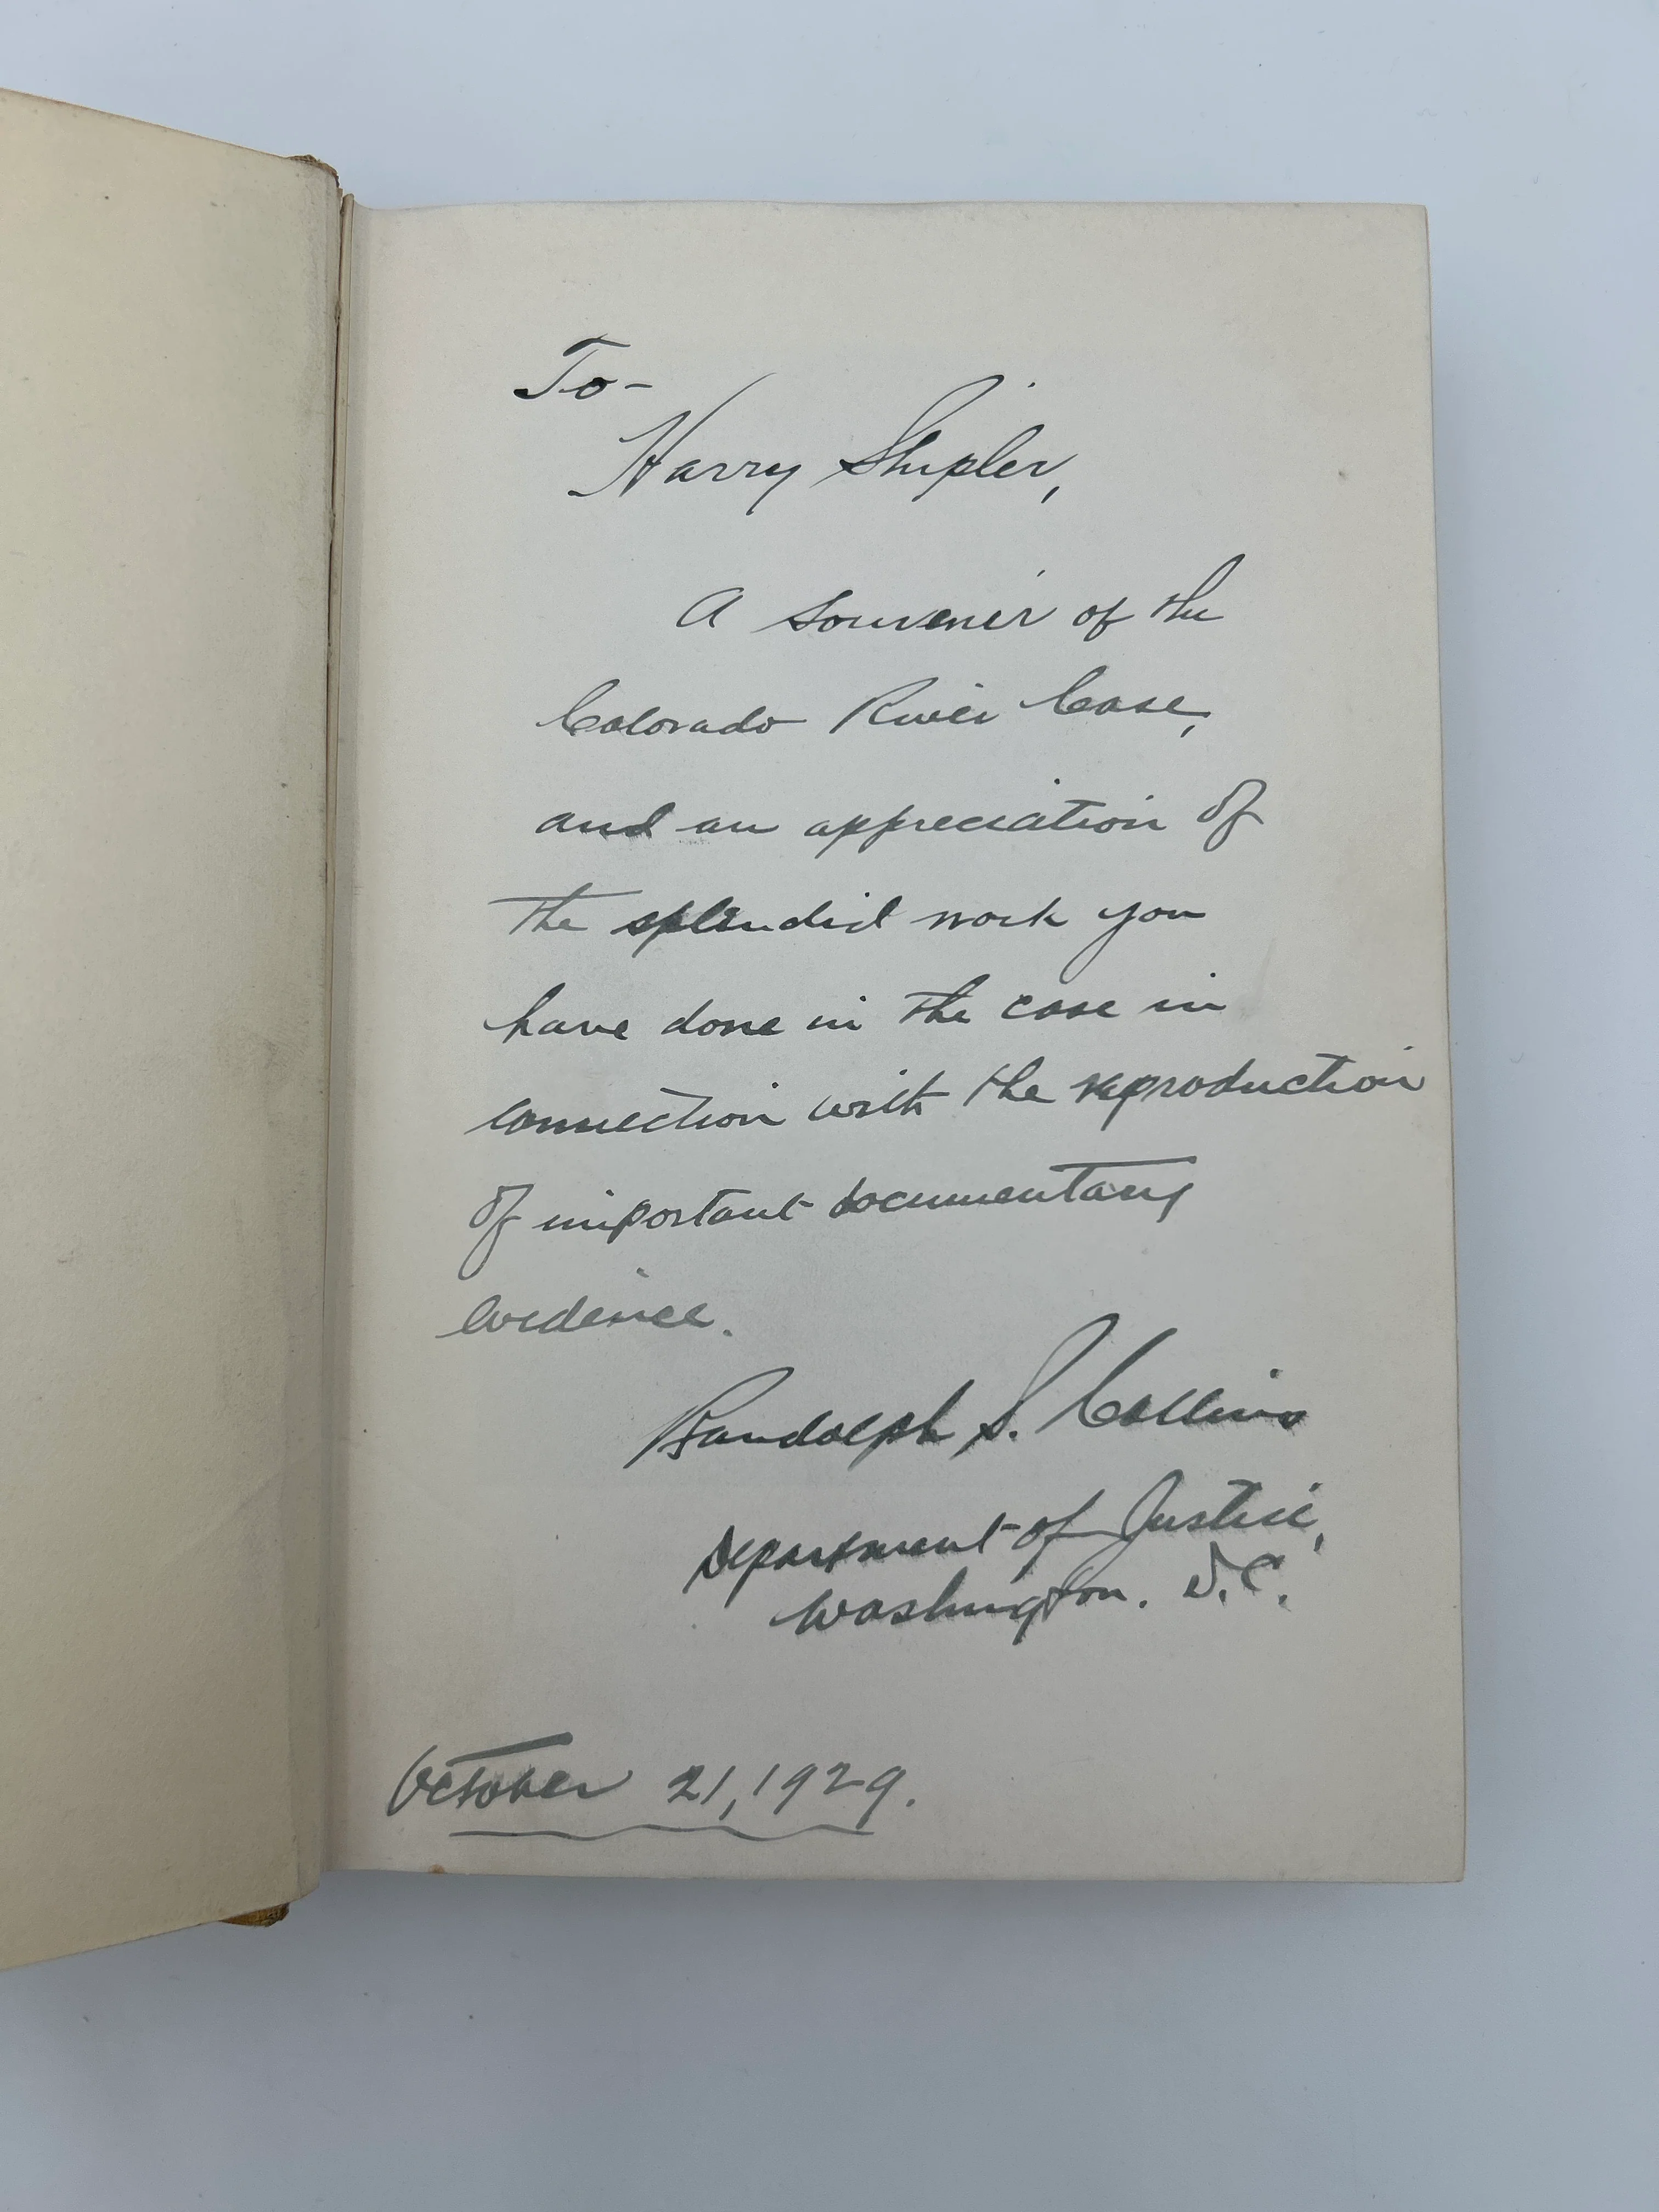 To-
Harry Shipler,
A souvenir of the
Colorado River Case,
and an appreciation of
the splendid work you
have done in the case in
connection with the reproduction
of important documentary
evidence.
Randolph S. Collins
Department of Justice,
Washington. D.C.
October 21, 1929.